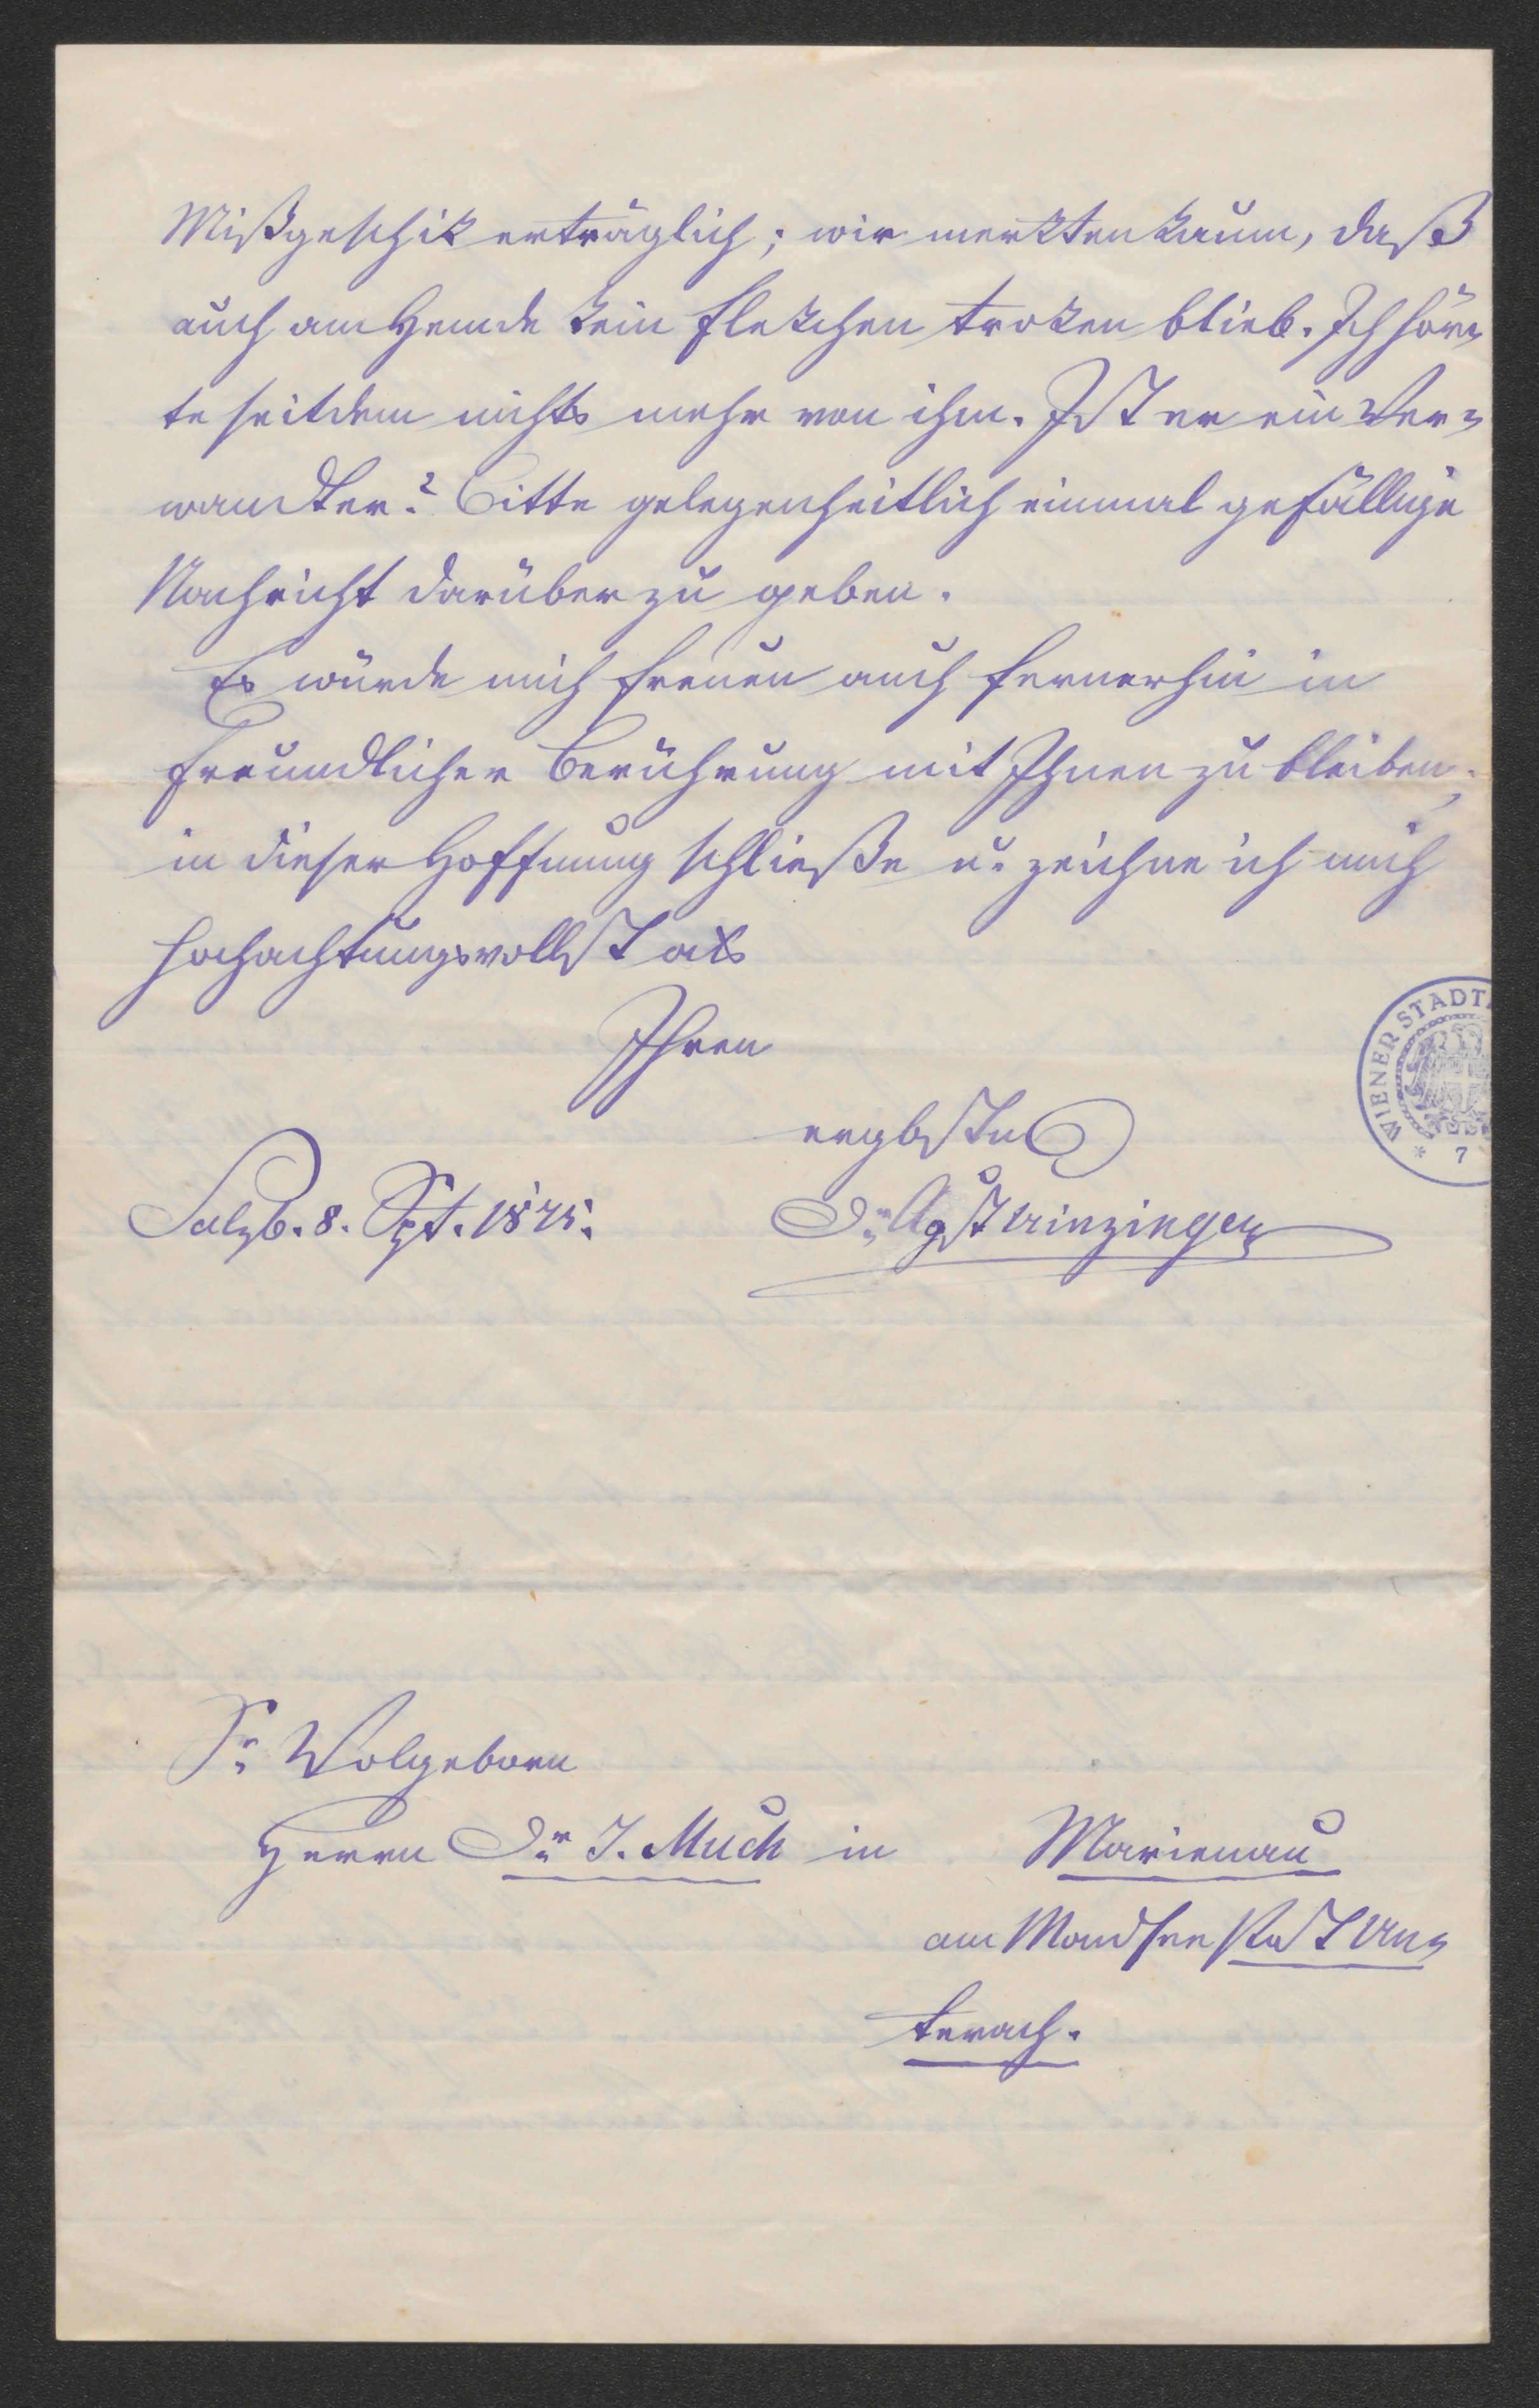 Mißgeschik erträglich; wir merkten kaum, daß
auch am Hemde kein Flekchen troken blieb. Ich hör=
te seitdem nichts mehr von ihm. Ist er ein Ver=
wandter? Bitte gelegenheitlich einmal gefällige
Nachricht darüber zu geben.
Es würde mich freuen auch fernerhin in
freundlicher Berührung mit Ihnen zu bleiben;
in dieser Hoffnung schließe u. zeichne ich mich
hochachtungsvollst als
Ihren
ergbsten
Salzb. 8. Spt. 1875.
Dr. Agst Prinzinger
WIENER STADT
* 7
Sr. Wolgeborn
Herrn Dr. J. Much in Marienau
am Mondsee Post Un=
terach.